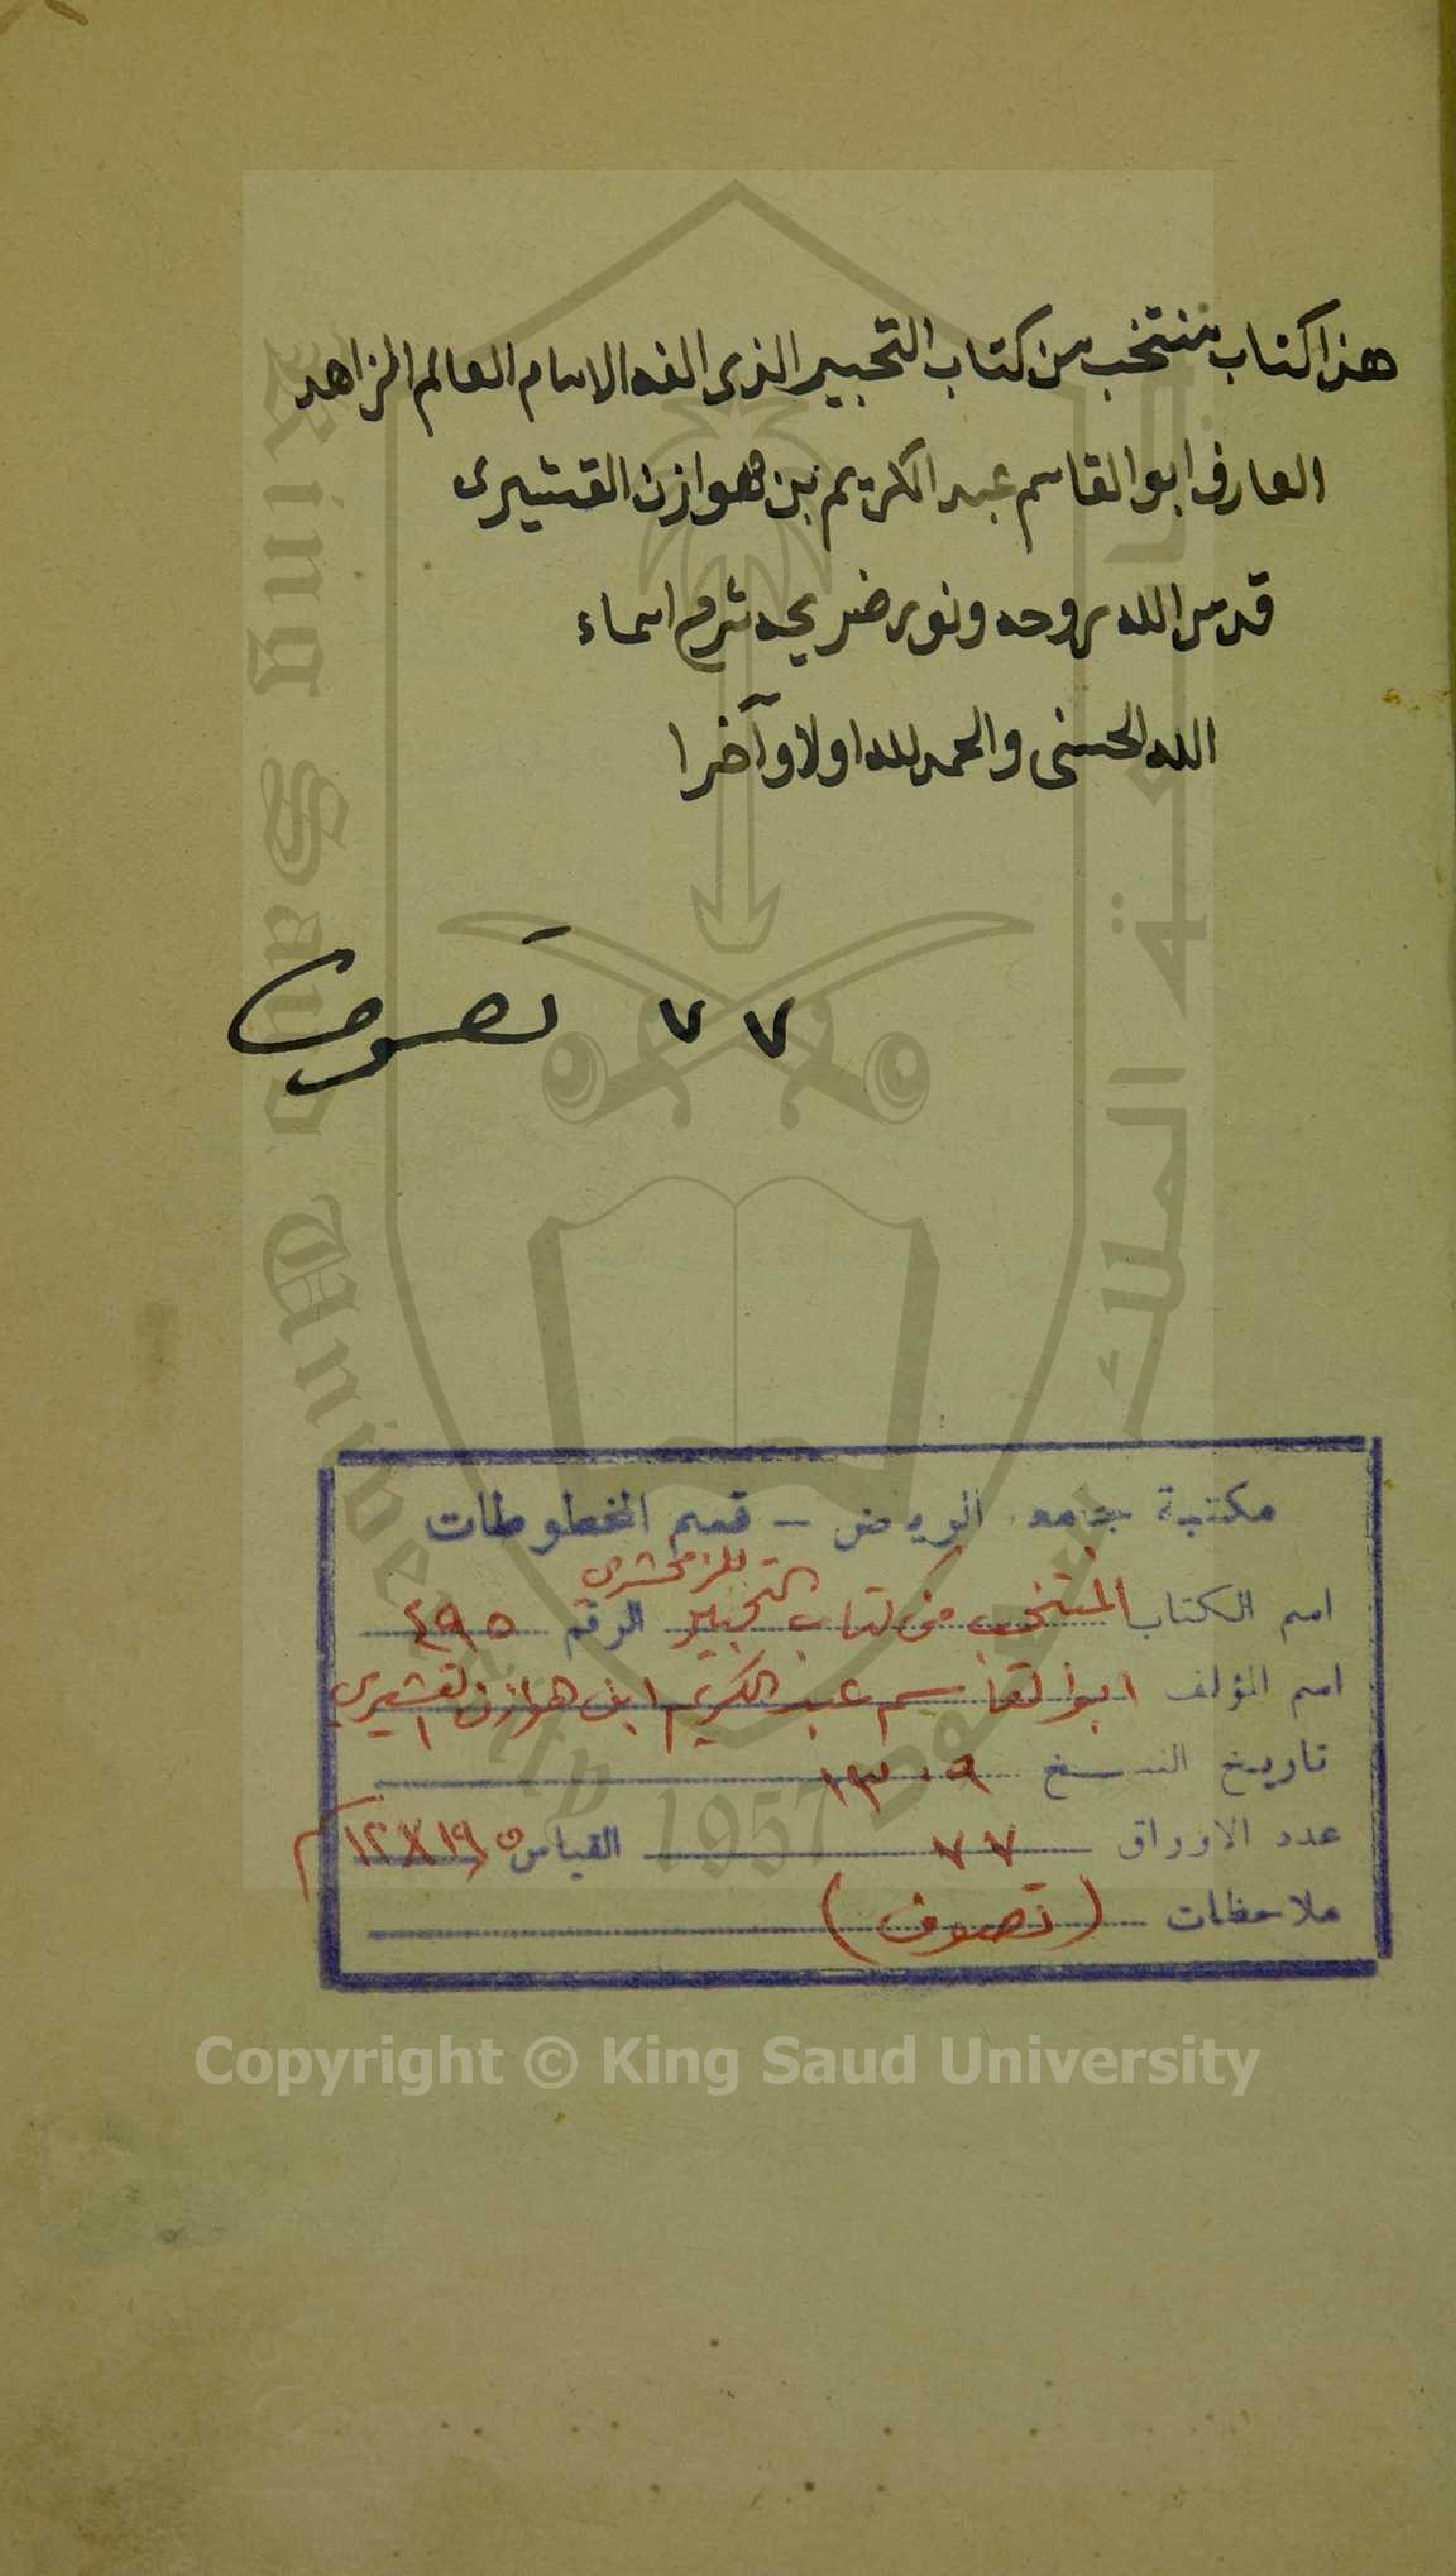 هذا كتاب منتخب من كتاب التحبير الذى الفه الامام العالم الزاهد
العارف ابو القاسم عبد الكريم بن هوازن القشيرى
قدس الله روحه ونور ضريحه شرح اسماء
الله الحسنى والحمد لله اولا وآخرا
٧٧ تصوف
مكتبة جامعة الرياض - قسم المخطوطات
للزمخشرى
اسم الكتاب المنتخب من كتاب التحبير الرقم ٤٩٥
اسم المؤلف ابو القاسم عبد الكريم ابن هوازن القشيري
تاريخ النسخ ١٣٠٩
عدد الاوراق ٧٧ القياس ١٢X١٩,٥ م
ملاحظات (تصوف)
جامعة الملك سعود
King Saud University
1957
Copyright © King Saud University